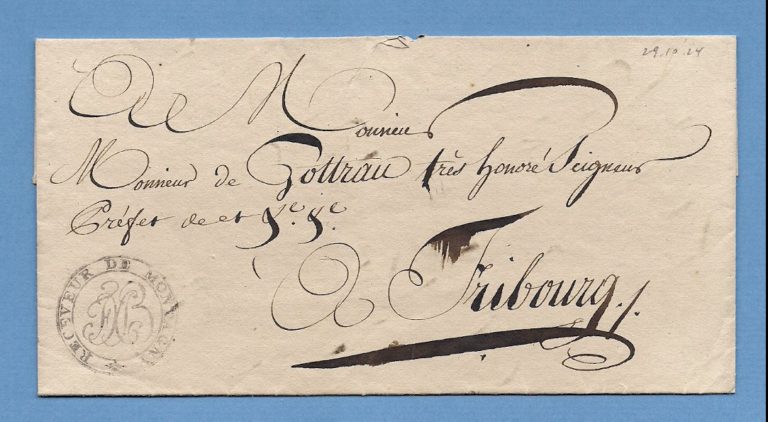 29.10.24
A Monsieur
Monsieur de Gottrau très honoré Seigneur
Préfet de et
A Fribourg.
RECEVEUR DE MONTAGNY